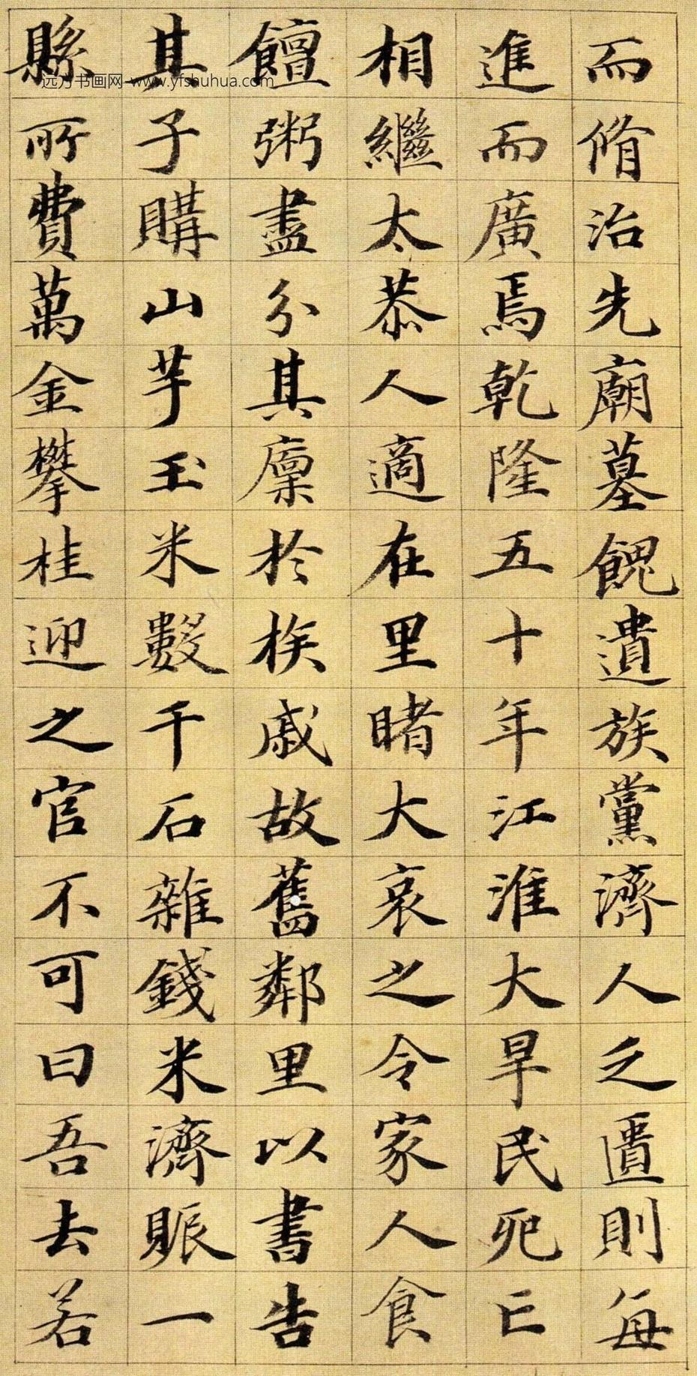 而脩治先廟墓餽遺族黨濟人之匱則每
進而廣焉乾隆五十年江淮大旱民死亡
相繼太恭人適在里睹大哀之令家人食
饘粥盡分其廩於族戚故舊鄰里以書告
其子購山芋玉米數千石雜錢米濟賑一
縣所費萬金攀桂迎之官不可曰吾去若
远方书画网 www.yfshuhua.com